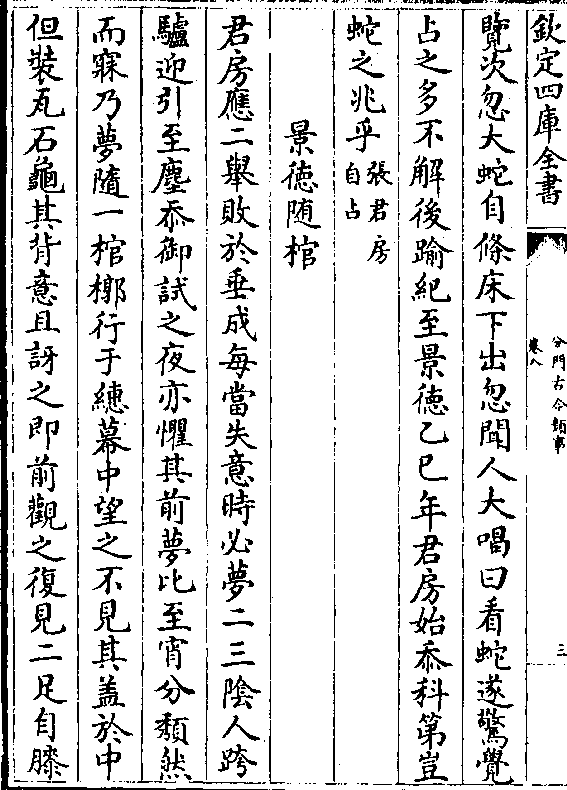 欽定四庫全書
分門古今類事
卷八
三
覽次忽大蛇自絛床下出忽聞人大喝曰看蛇遂驚覺
占之多不解後踰紀至景徳乙巳年君房始忝科第豈
蛇之兆乎張君房
自占
景徳随棺
君房應二舉敗於垂成每當失意時必夢二三隂人跨
驢迎引至塵忝御試之夜亦懼其前夢比至宵分頽然
而寐乃夢隨一棺槨行于繐幕中望之不見其盖於中
但裝瓦石龜其背意且訝之即前觀之復見二足自膝